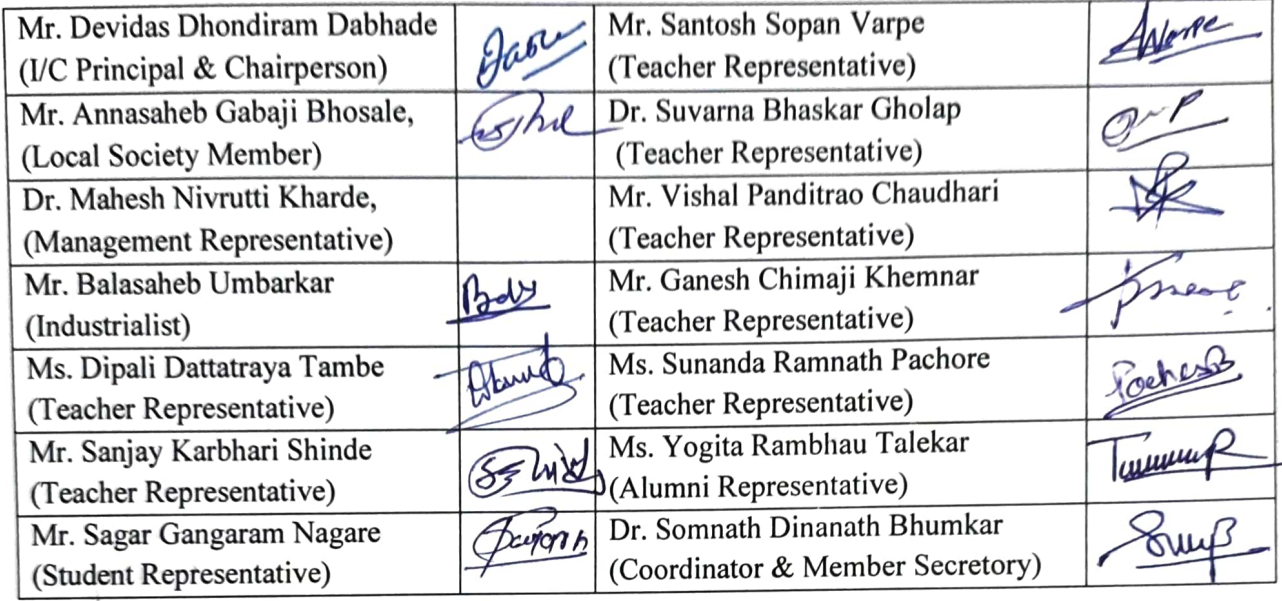 Mr. Devidas Dhondiram Dabhade
(I/C Principal & Chairperson)
Mr. Santosh Sopan Varpe
(Teacher Representative)
Mr. Annasaheb Gabaji Bhosale,
(Local Society Member)
Dr. Suvarna Bhaskar Gholap
(Teacher Representative)
Dr. Mahesh Nivrutti Kharde,
(Management Representative)
Mr. Vishal Panditrao Chaudhari
(Teacher Representative)
Mr. Balasaheb Umbarkar
(Industrialist)
Mr. Ganesh Chimaji Khemnar
(Teacher Representative)
Ms. Dipali Dattatraya Tambe
(Teacher Representative)
Ms. Sunanda Ramnath Pachore
(Teacher Representative)
Mr. Sanjay Karbhari Shinde
(Teacher Representative)
Ms. Yogita Rambhau Talekar
(Alumni Representative)
Mr. Sagar Gangaram Nagare
(Student Representative)
Dr. Somnath Dinanath Bhumkar
(Coordinator & Member Secretary)